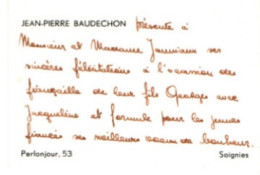 JEAN-PIERRE BAUDECHON présente à
Monsieur et Madame ses
sincères félicitations à l'occasion des
fiançailles de leur fils avec
Jacqueline et formule pour les jeunes
fiancés ses meilleurs voeux de bonheur.
Perlonjour, 53 Soignies